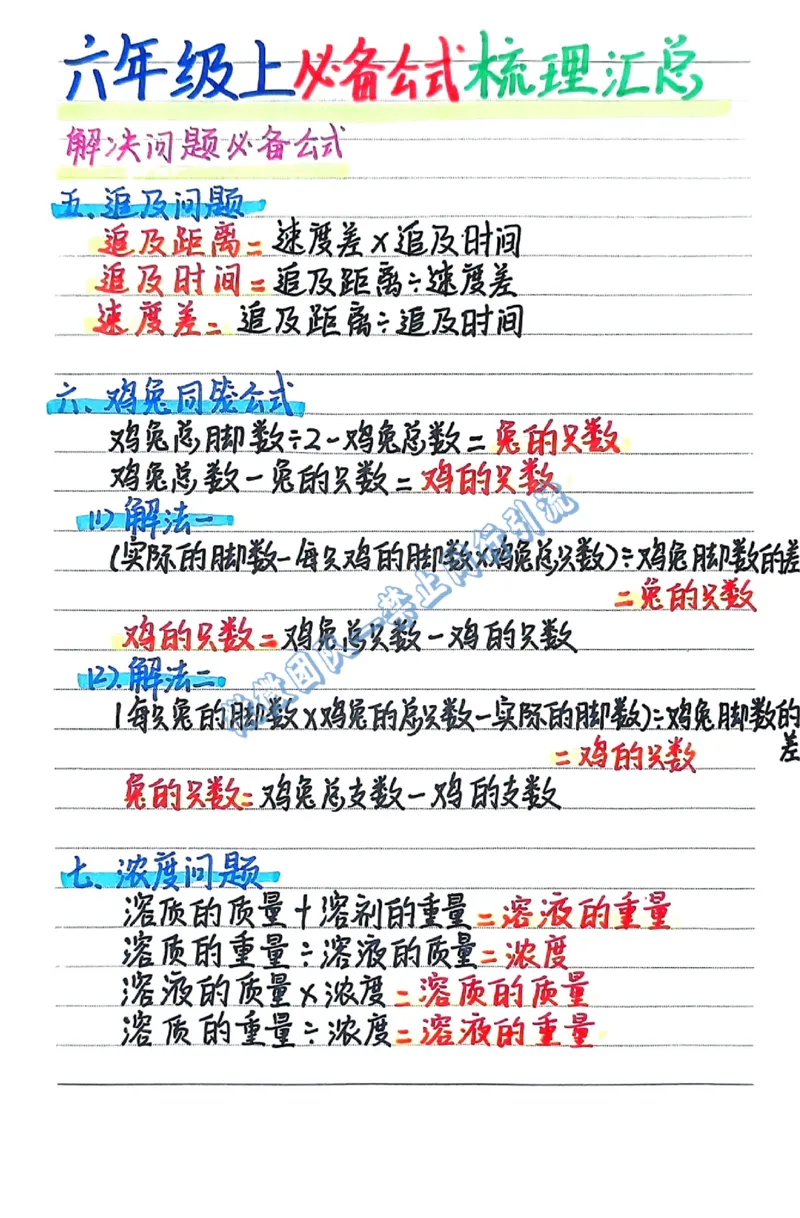 六年级上必备公式梳理汇总
解决问题必备公式
五、追及问题
追及距离=速度差×追及时间
追及时间=追及距离÷速度差
速度差=追及距离÷追及时间
六、鸡兔同笼公式
鸡兔总脚数÷2-鸡兔总数=兔的只数
鸡兔总数-兔的只数=鸡的只数
(1)解法一
(实际的脚数-每只鸡的脚数×鸡兔总只数)÷鸡兔脚数的差
=兔的只数
鸡的只数=鸡兔总只数-鸡的只数
(2).解法二
(每只兔的脚数×鸡兔的总只数-实际的脚数)÷鸡兔脚数的
差
=鸡的只数
兔的只数=鸡兔总支数-鸡的支数
七、浓度问题
溶质的质量+溶剂的重量=溶液的重量
溶质的重量÷溶液的质量=浓度
溶液的质量×浓度=溶质的质量
溶质的重量÷浓度=溶液的重量